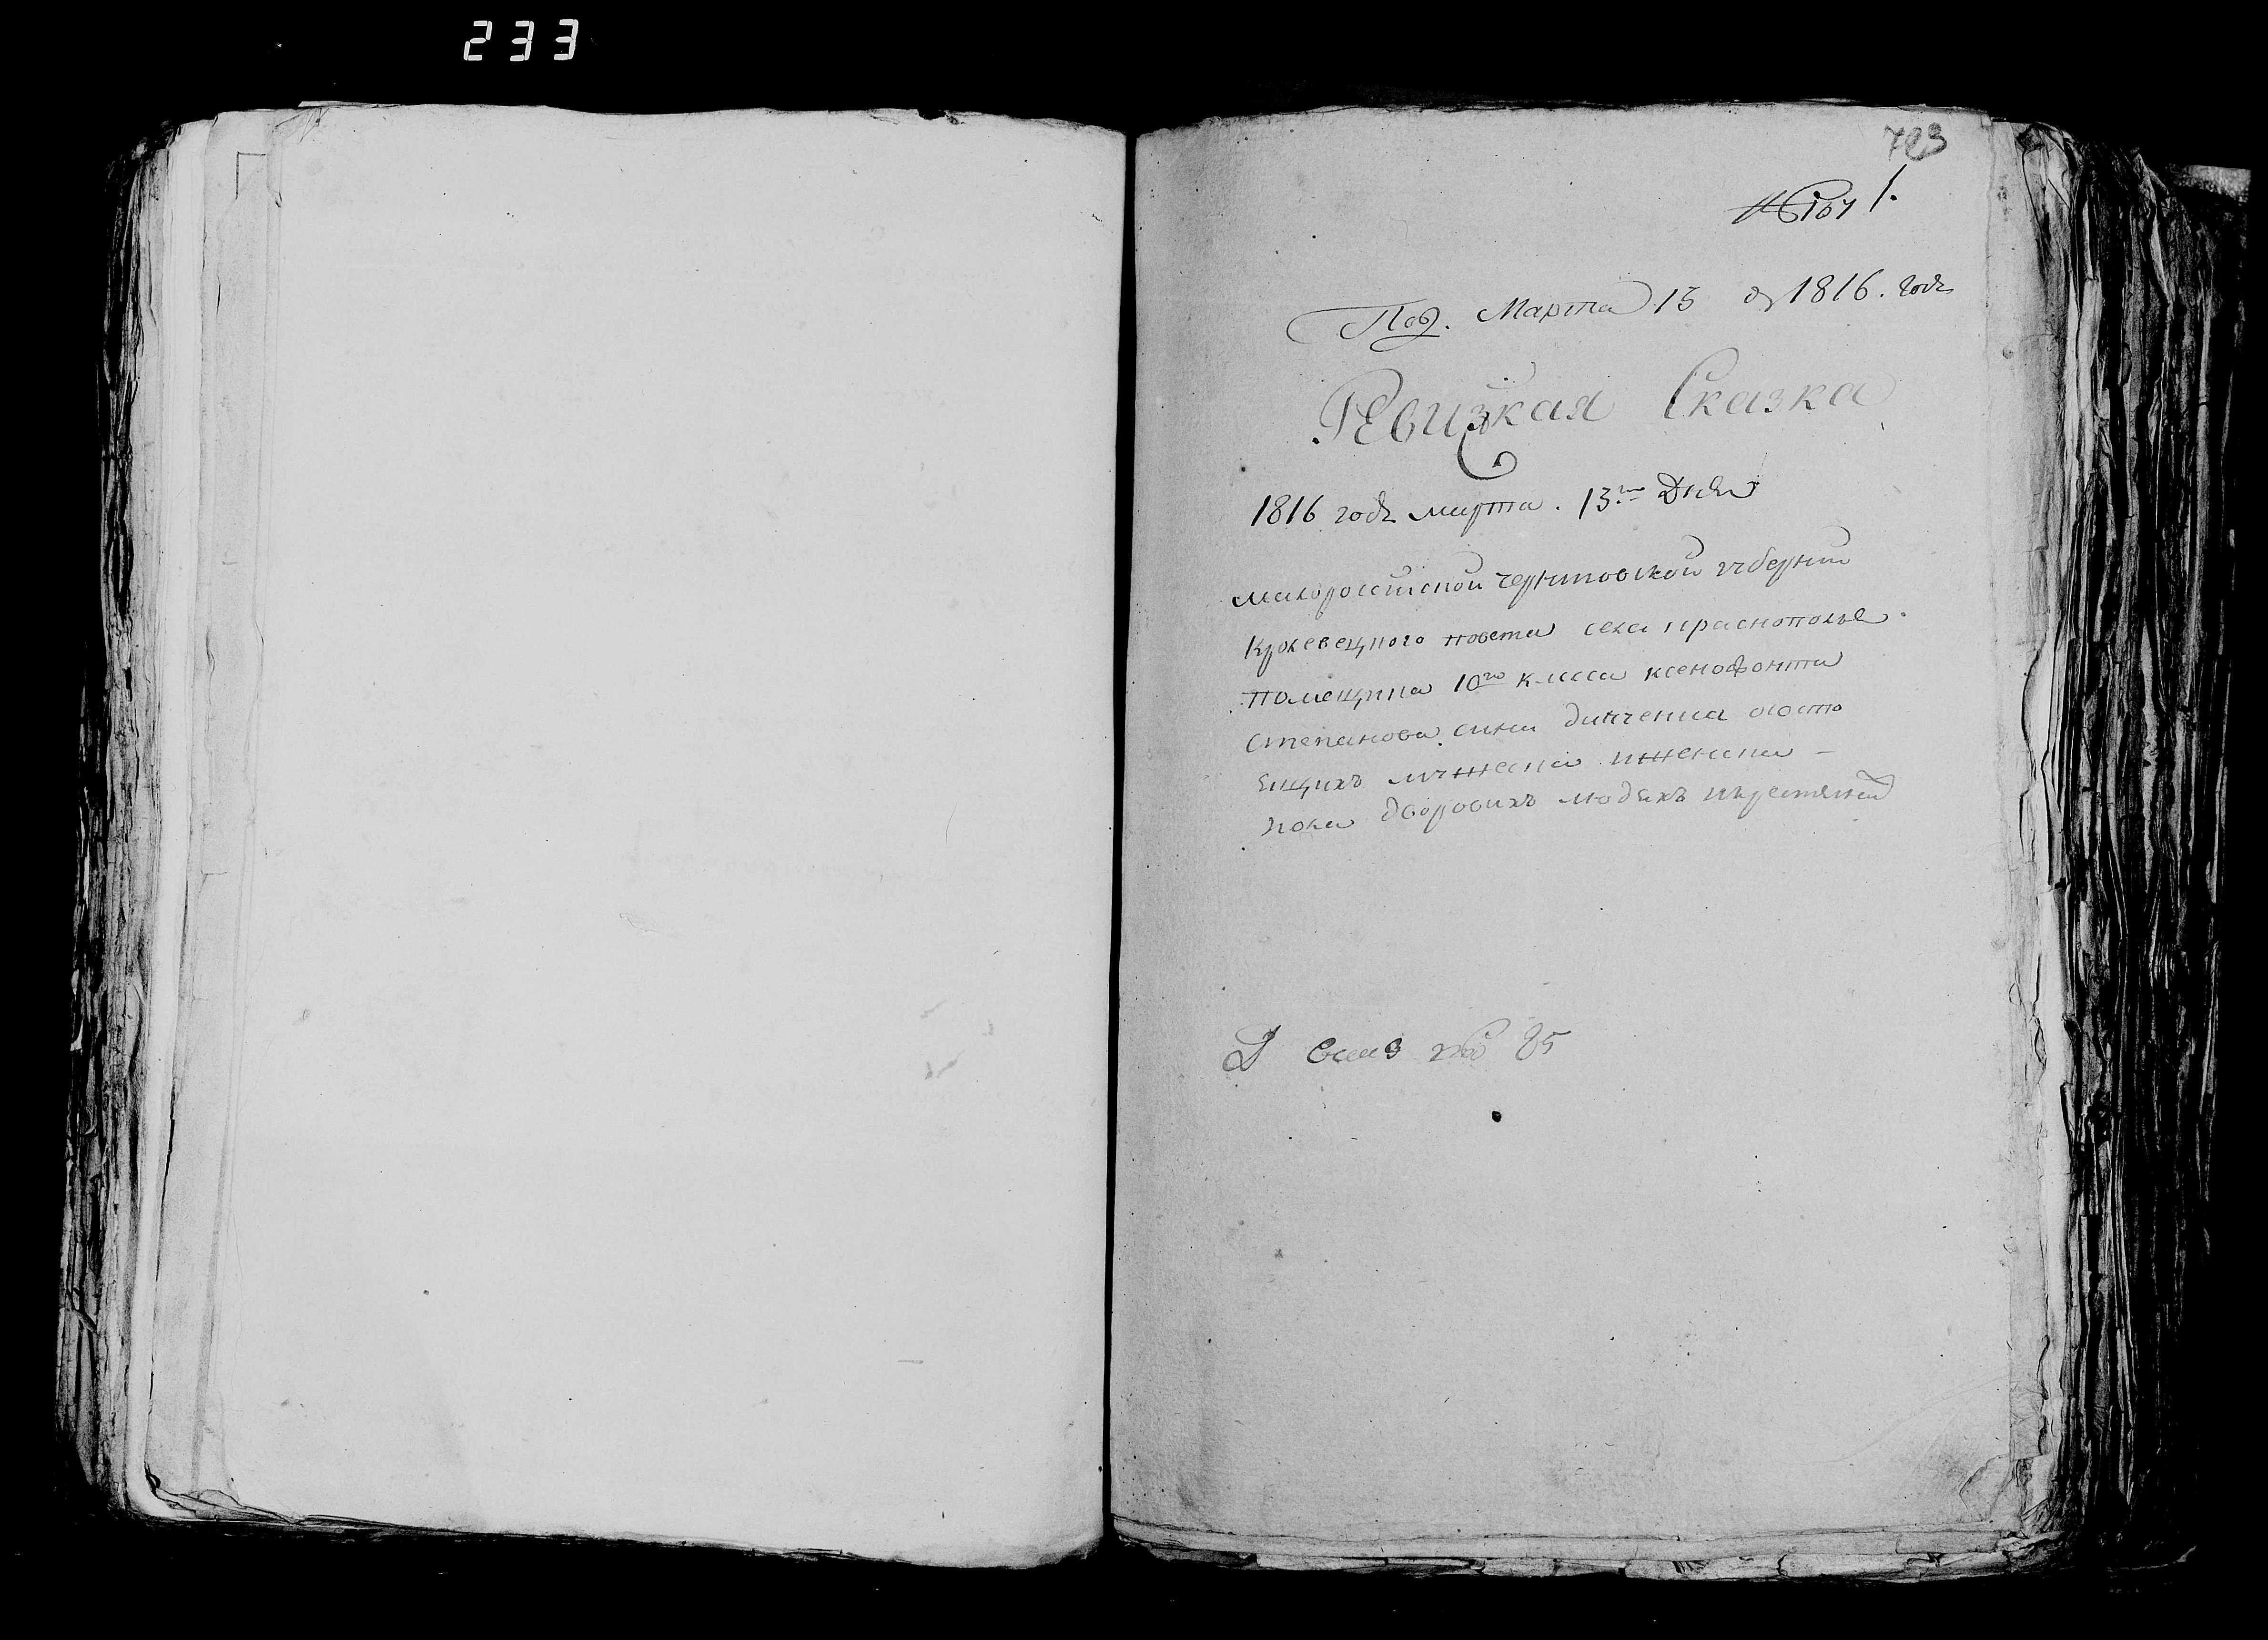 233
703
1.
Под. Марта 13 д 1816. годъ
Ревизкая Сказка
1816 годъ марта. 13го Дня
малоросийской черниговской губернии
Кролевецкого повета села краснополья
помещика 10го класа ксенофонта
степанова сина динченка ососто
ещихъ мужеска иженска
пола дворовихъ людехъ икрестяней
85